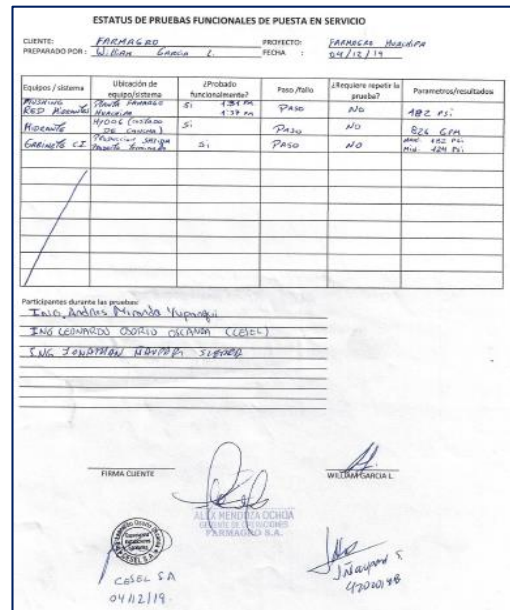 ESTATUS DE PRUEBAS FUNCIONALES DE PUESTA EN SERVICIO
CLIENTE: FARMAGRO PROYECTO: FARMAGRO HUACHIPA
PREPARADO POR: William GARCIA L. FECHA : 04/12/19
Equipos / sistema Ubicación de equipo/sistema ¿Probado funcionalmente? Paso /fallo ¿Requiere repetir la prueba? Parametros/resultados
FLUSHING RED HIDRANTES PLANTA FARMAGRO HUACHIPA Si PASO NO 182 PSi
HIDRANTE HYD06 (COSTADO DE CANCHA) Si PASO NO 826 GPM
GABINETE C.I PRODUCCION SALIDA Producto Terminado Si PASO NO MAX. 182 PSi Min. 124 PSi
Participantes durante las pruebas:
ING. Andres Miranda Yupanqui
ING LEONARDO OSORIO (CESEL)
ING JONATHAN ÑAUPARI
FIRMA CLIENTE
WILLIAM GARCIA L.
ALEX MENDOZA OCHOA
GERENTE DE OPERACIONES
FARMAGRO S.A.
CESEL S.A
04/12/19.